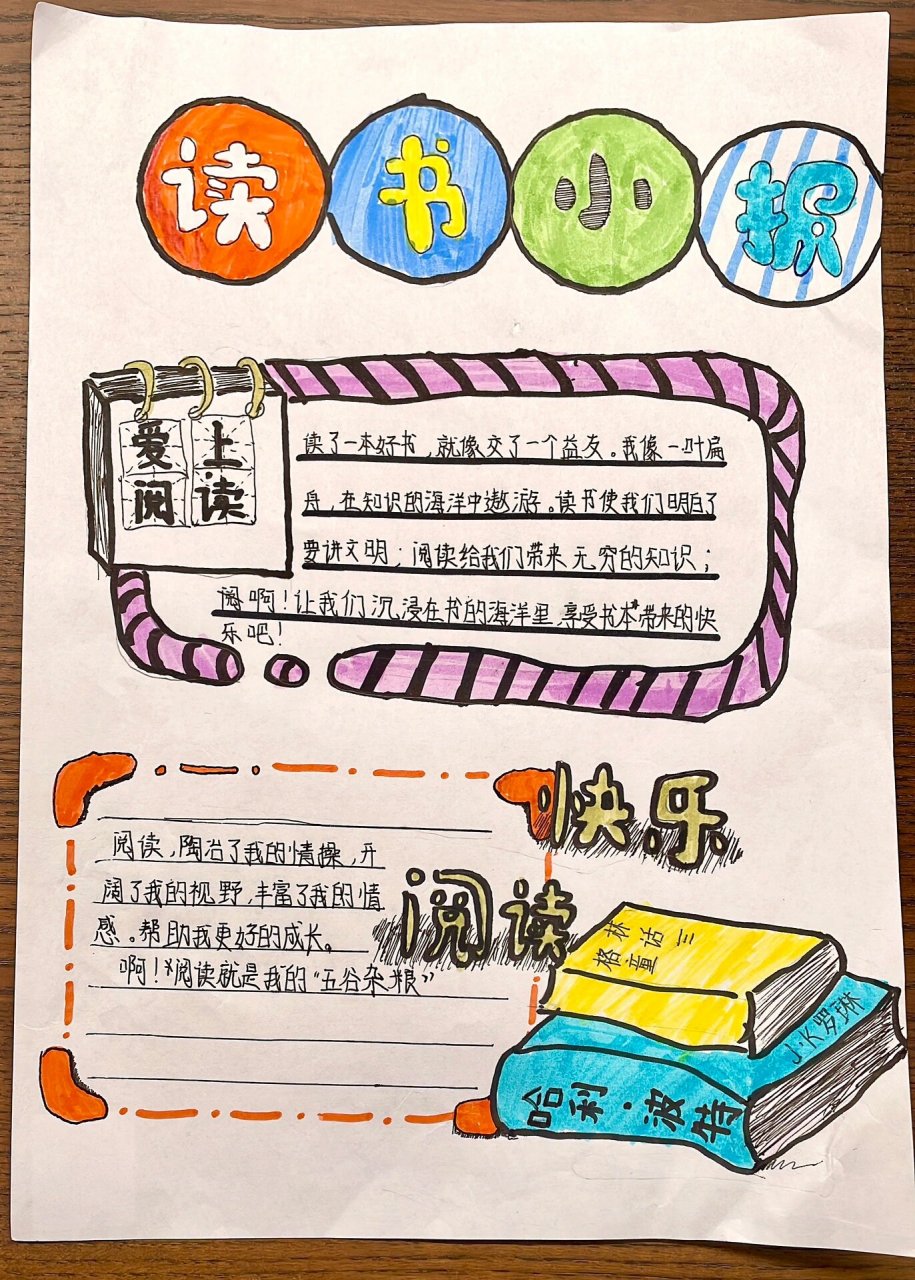 读书小报
爱上
阅读
读了一本好书，就像交了一个益友。我像一叶扁
舟，在知识的海洋中遨游。读书使我们明白了
要讲文明；阅读给我们带来无穷的知识；
阅啊！让我们沉浸在书的海洋里，享受书本带来的快
乐吧！
快乐
阅读
阅读，陶冶了我的情操，开
阔了我的视野，丰富了我的情
感。帮助我更好的成长。
啊！阅读就是我的“五谷杂粮”
格林
童话
三
J·K罗琳
哈利·波特